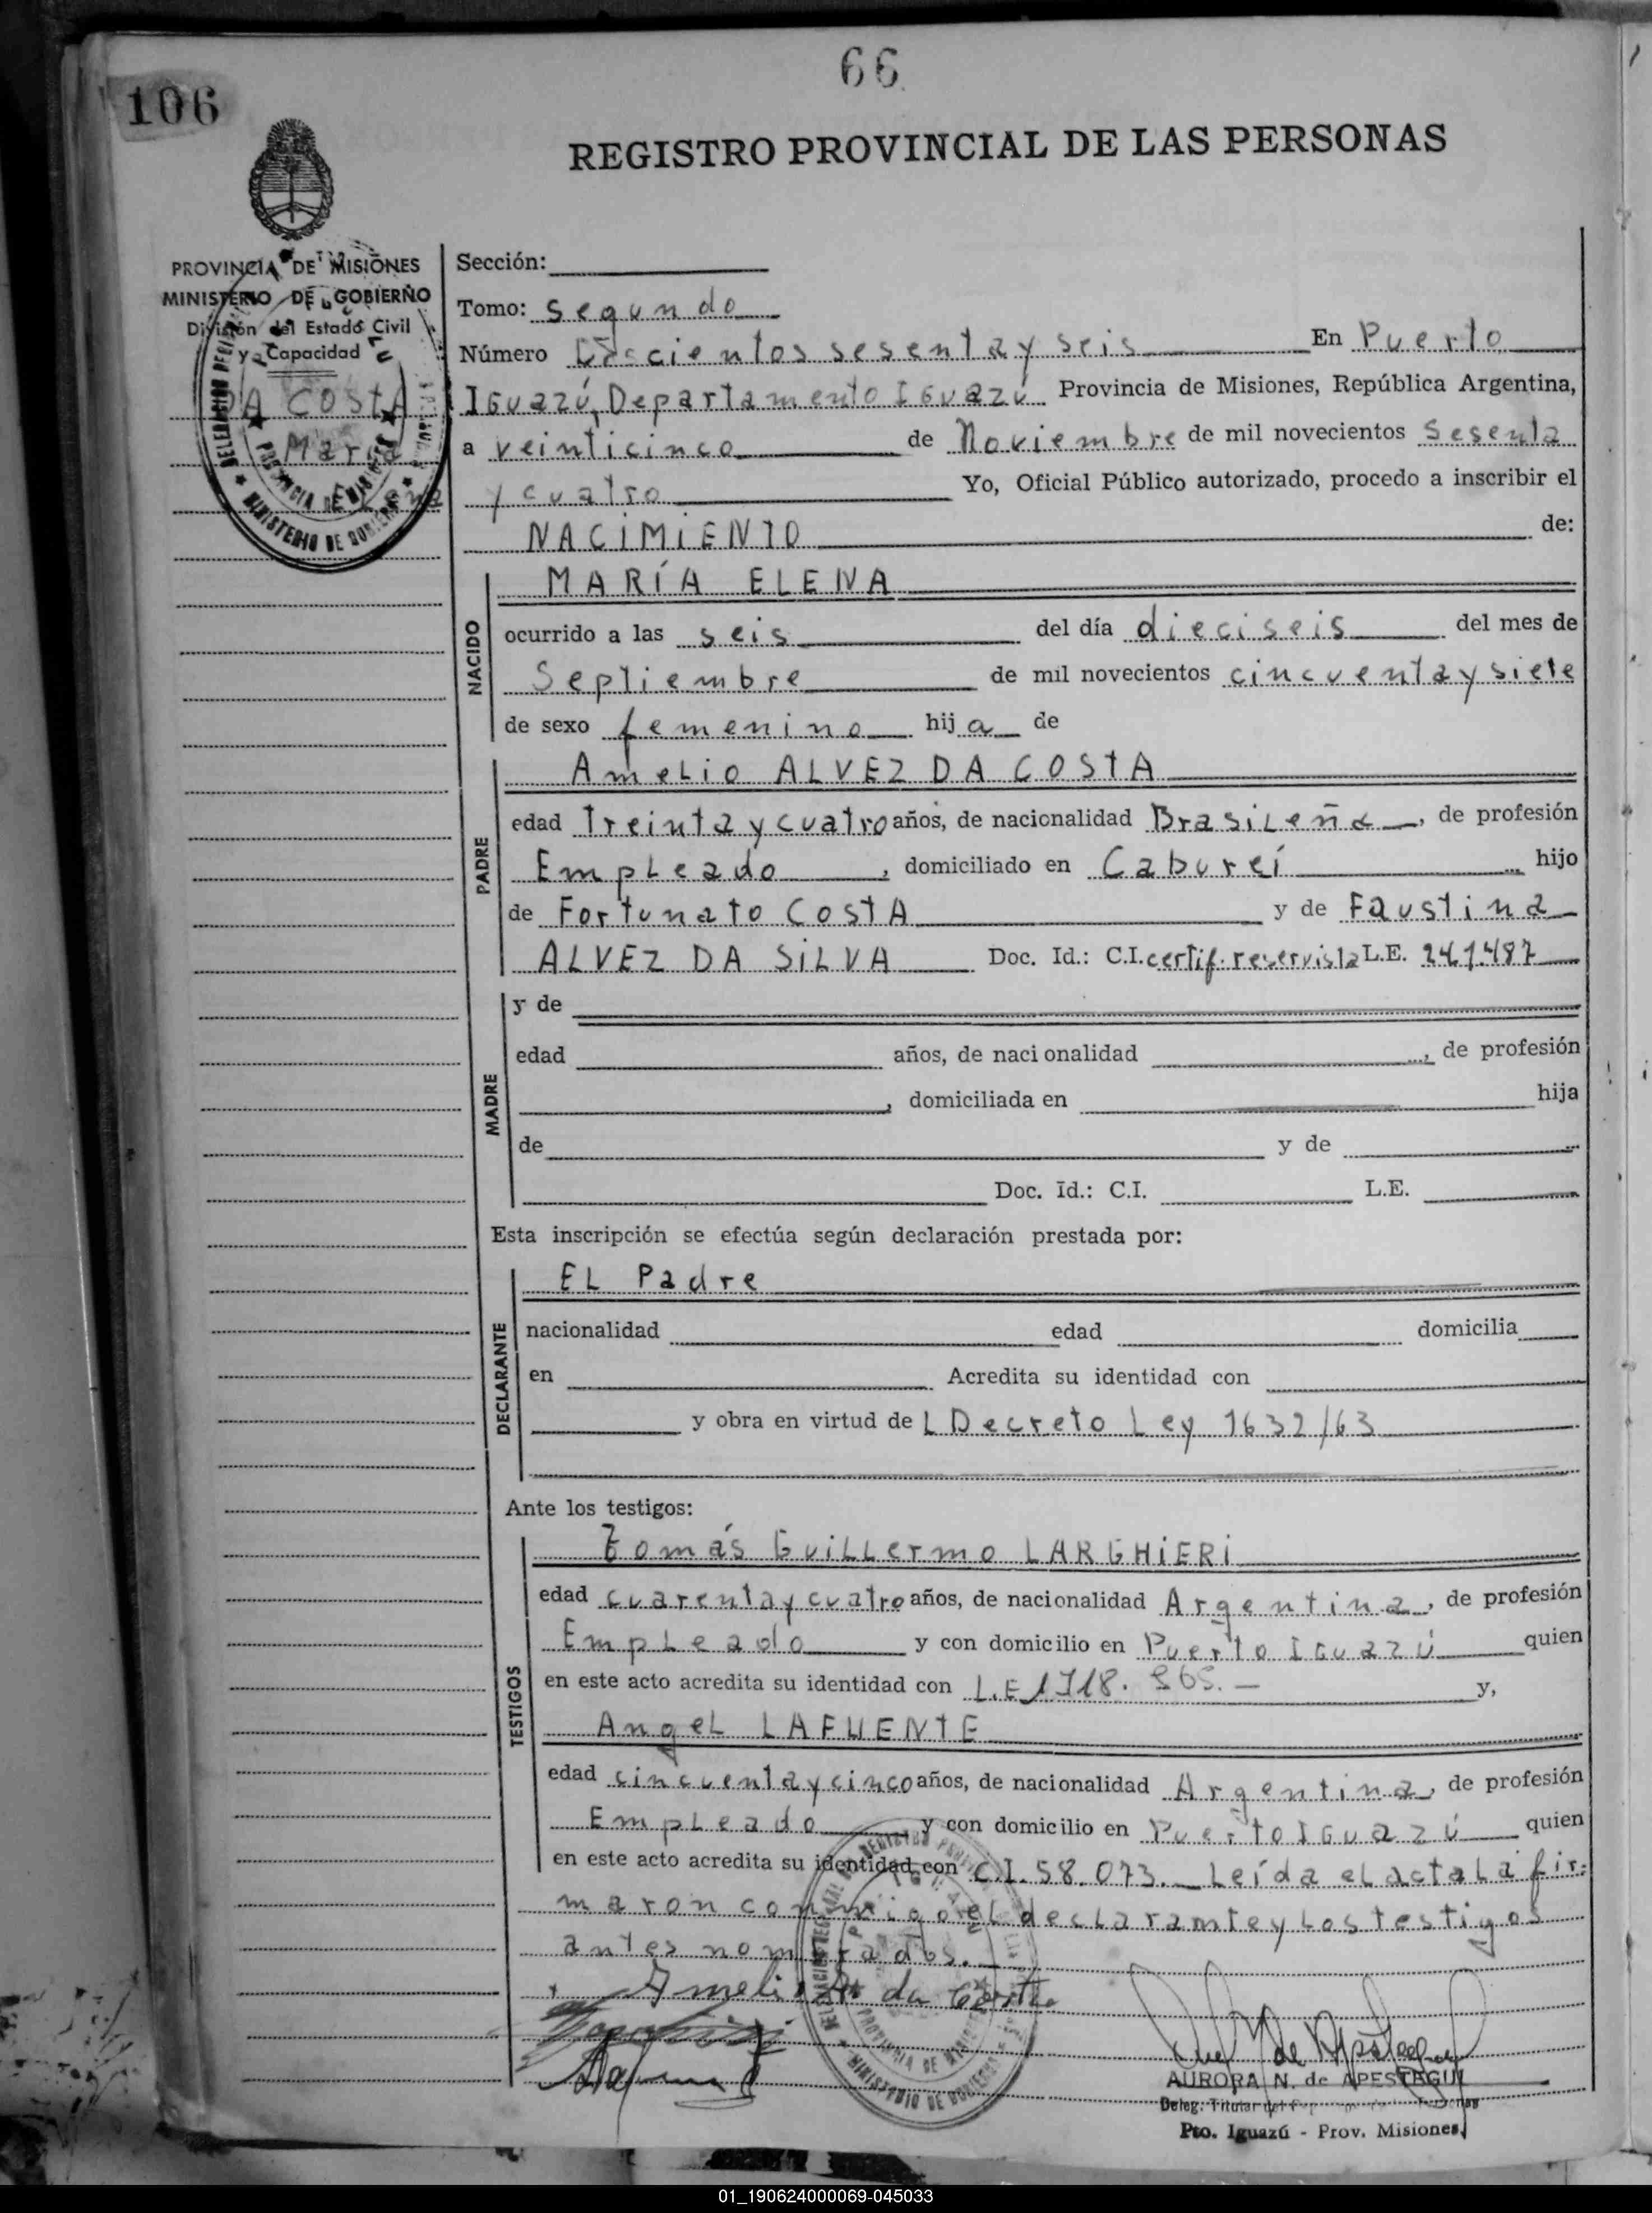 66
106
REGISTRO PROVINCIAL DE LAS PERSONAS
PROVINCIA DE MISIONES
MINISTERIO DE GOBIERNO
División del Estado Civil
y Capacidad
DA COSTA
María
Elena
Sección:
Tomo: segundo
Número Doscientos sesenta y seis En Puerto
Iguazú, Departamento Iguazú Provincia de Misiones, República Argentina,
a veinticinco de Noviembre de mil novecientos sesenta
y cuatro Yo, Oficial Público autorizado, procedo a inscribir el
NACIMIENTO de:
NACIDO
MARÍA ELENA
ocurrido a las seis del día dieciseis del mes de
Septiembre de mil novecientos cincuenta y siete
de sexo femenino hija de
PADRE
Amelio ALVEZ DA COSTA
edad Treinta y cuatro años, de nacionalidad Brasileña, de profesión
Empleado, domiciliado en Cabureí hijo
de Fortunato COSTA y de Faustina
ALVEZ DA SILVA Doc. Id.: C.I. certif. reservista L.E. 241.487
MADRE
y de
edad años, de nacionalidad , de profesión
, domiciliada en hija
de y de
Doc. Id.: C.I. L.E.
Esta inscripción se efectúa según declaración prestada por:
DECLARANTE
EL Padre
nacionalidad edad domicilia
en Acredita su identidad con
y obra en virtud del Decreto Ley 1632/63
Ante los testigos:
TESTIGOS
Tomás Guillermo LARGHIERI
edad cuarenta y cuatro años, de nacionalidad Argentina, de profesión
Empleado y con domicilio en Puerto Iguazú quien
en este acto acredita su identidad con L.E 1718. 965.— y,
Angel LAFUENTE
edad cincuenta y cinco años, de nacionalidad Argentina, de profesión
Empleado y con domicilio en Puerto Iguazú quien
en este acto acredita su identidad con C.I. 58.073.— Leída el acta la fir-
maron conmigo el declarante y los testigos
antes nombrados.—
Amelio A. da Costa
AURORA N. de APESTEGUI
Deleg. Titular del
Pto. Iguazú - Prov. Misiones
01_190624000069-045033